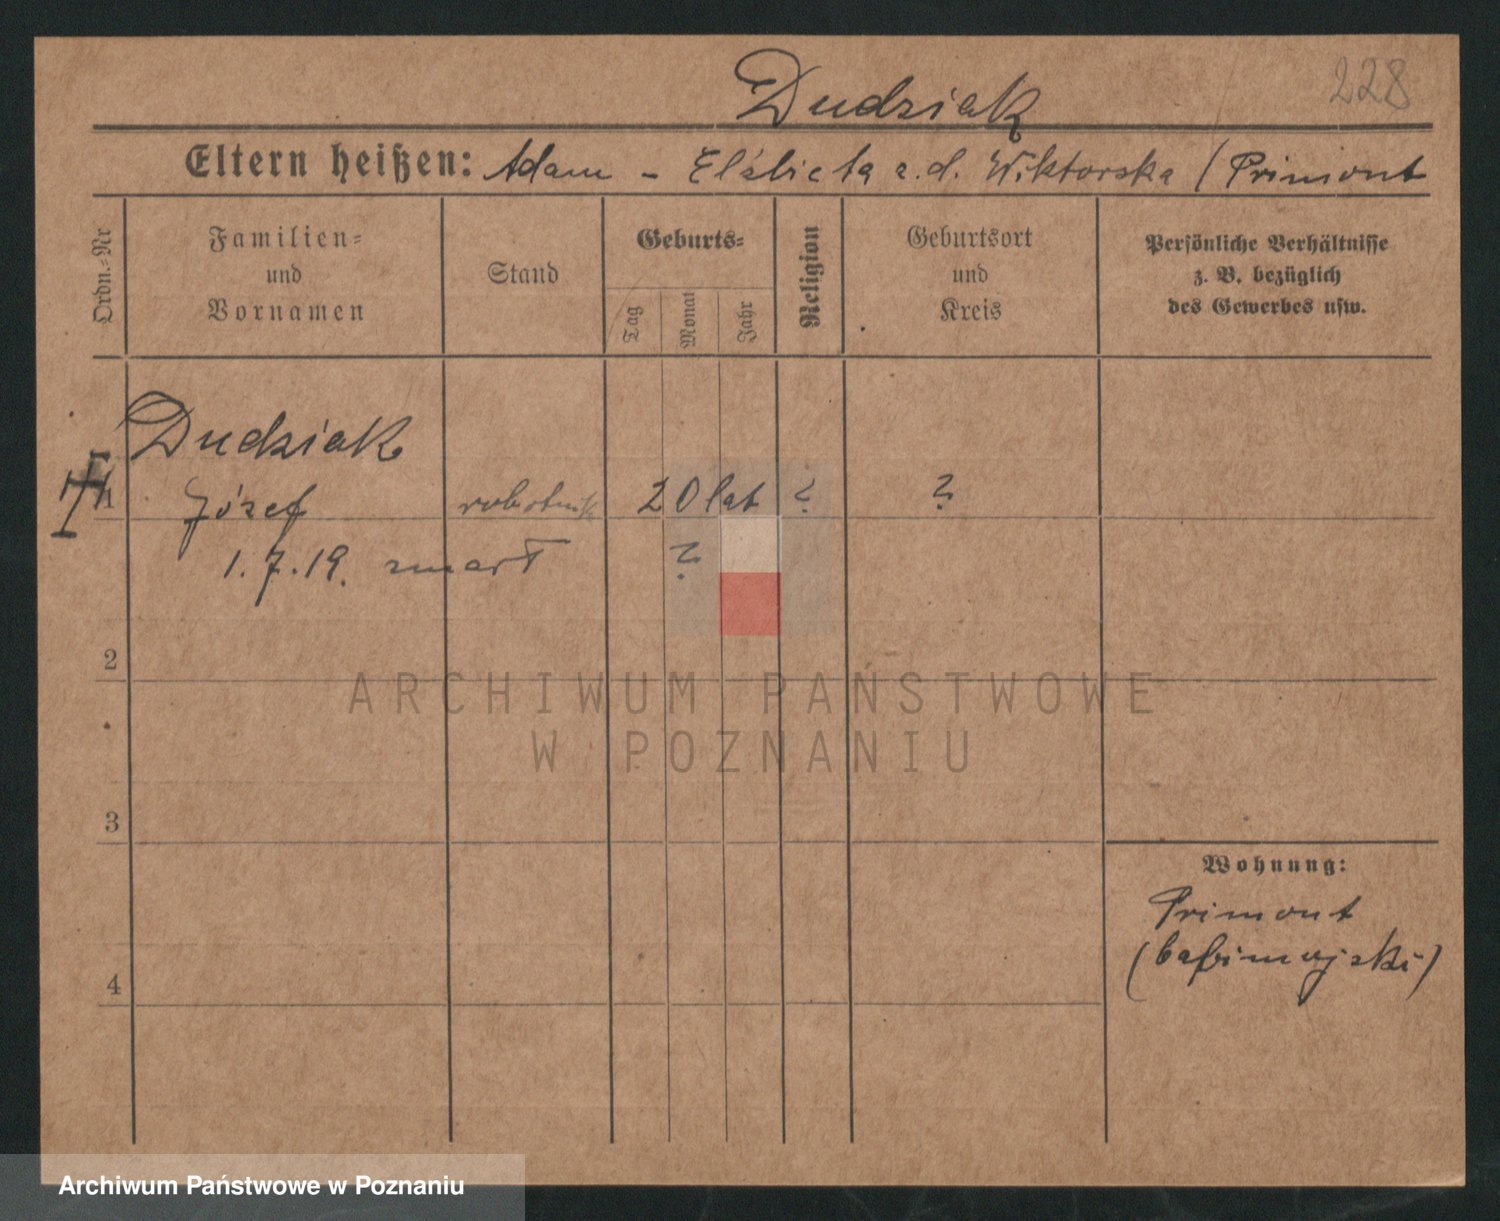 Dudziak 228
Eltern heißen: Adam - Elżbieta z.d. Wiktorska / Primont
Ordn.=Nr
Familien=
und
Vornamen
Stand
Geburts=
Tag
Monat
Jahr
Religion
Geburtsort
und
Kreis
Persönliche Verhältnisse
z. B. bezüglich
des Gewerbes usw.
Dudziak
1 Józef robotnik 20 lat ? ?
1.7.19. zmarł ?
2
ARCHIWUM PAŃSTWOWE
W POZNANIU
3
Wohnung:
Primont
(babimojski)
4
Archiwum Państwowe w Poznaniu